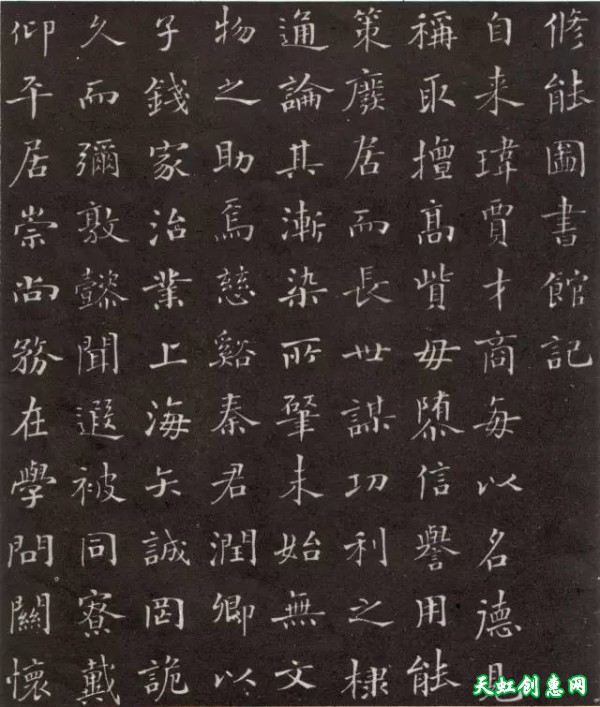 修能圖書館記
自来瑋賈才商每以名德見
稱取擅高貲毋隳信譽用能
策廢居而長世謀功利之棣
通論其漸染所肇未始無文
物之助焉慈谿秦君潤卿以
子錢家治業上海矢誠罔詭
久而彌敦懿聞遐被同寮戴
仰平居崇尚務在學問關懷
天虹创惠网